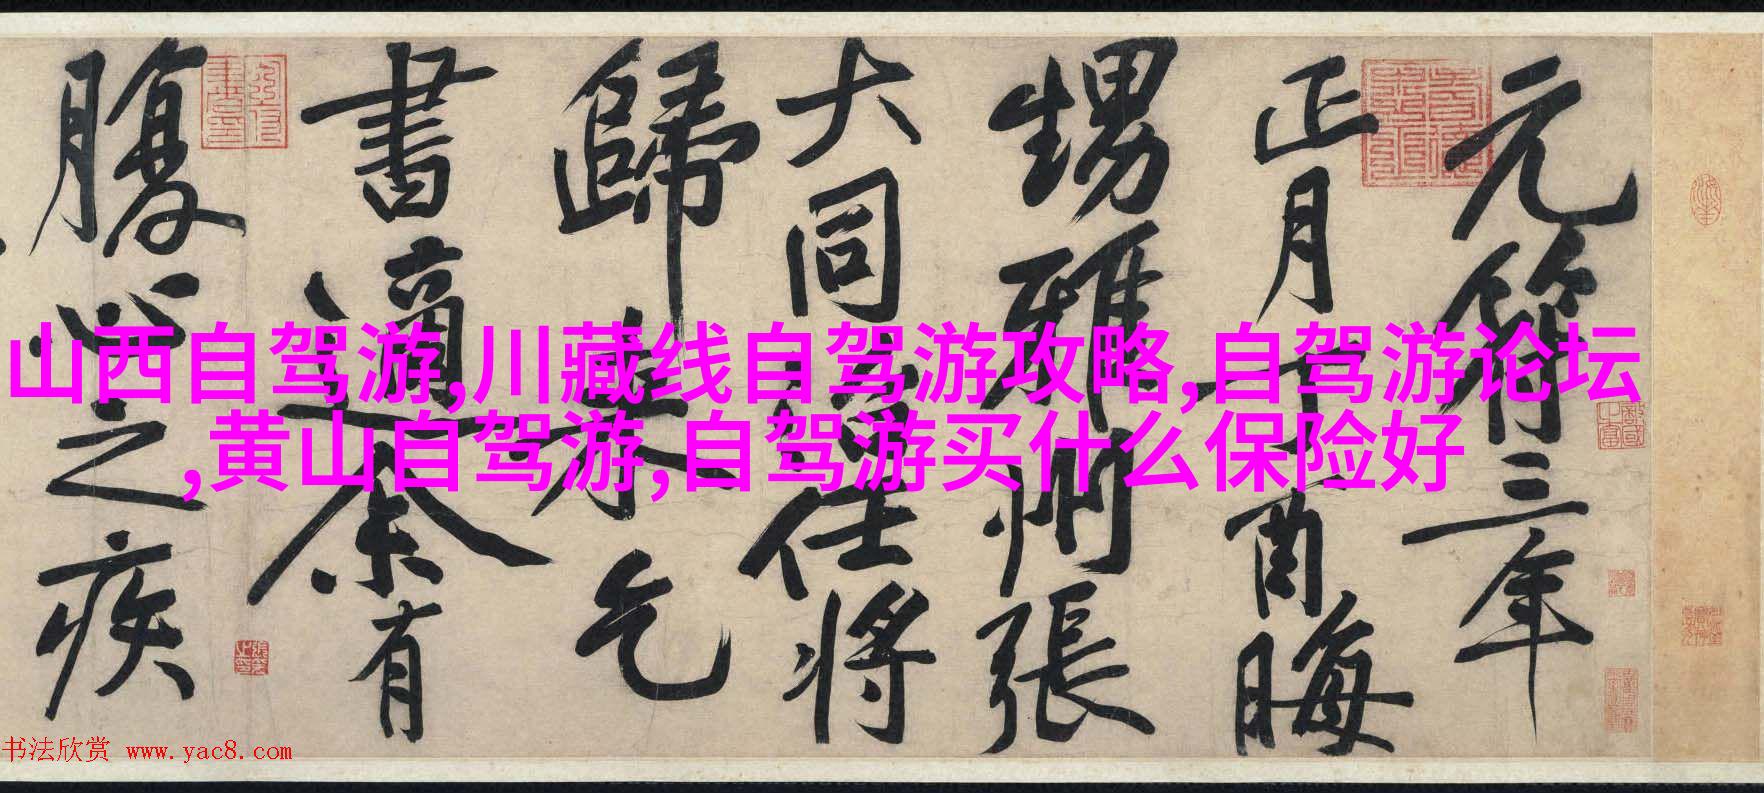 元符三年
正月丁酉晦
甥雅州張
大同治任將
歸來乞
書適余有
腹心之疾
山西自驾游,川藏线自驾游攻略,自驾游论坛
,黄山自驾游,自驾游买什么保险好
书法欣赏 www.yac8.com